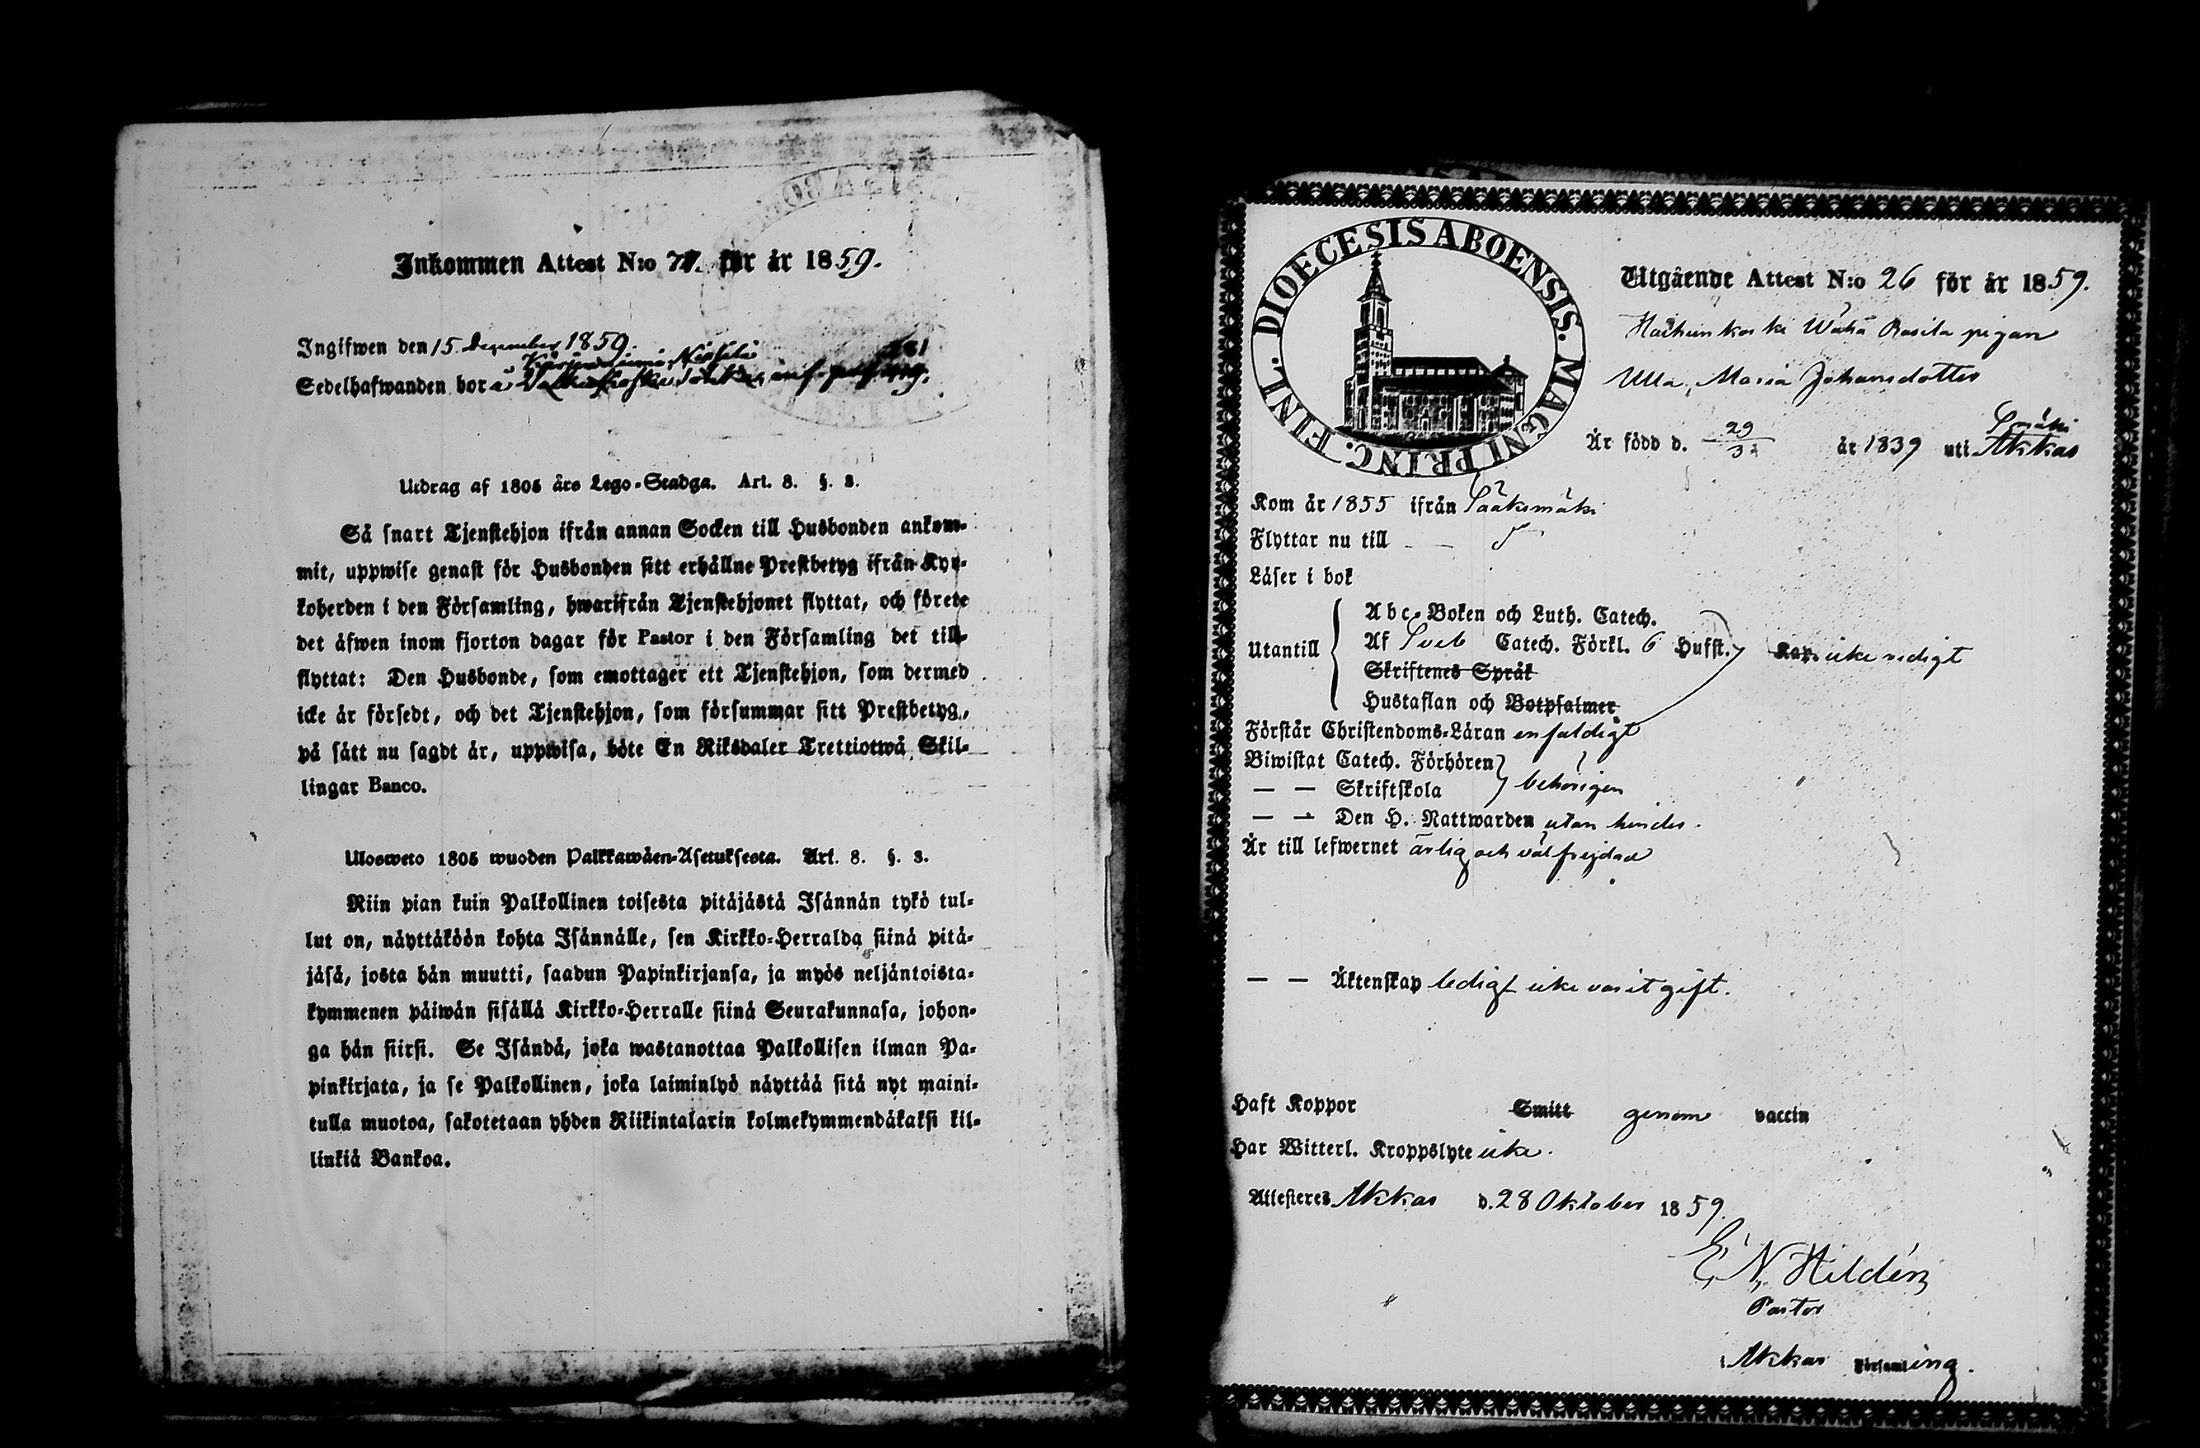 Inkommen Attest N:o 77. för år 1859.
Ingifwen den 15 December 1859.
Sedelhafwanden bor å
Utdrag af 1805 års Lego-Stadga. Art. 8. §. 3.
Så snart Tjenstehjon ifrån annan Socken till Husbonden ankom-
mit, uppwise genast för Husbonden sitt erhållne Prestbetyg ifrån Kyr-
koherden i den Församling, hwarifrån Tjenstehjonet flyttat, och förete
det äfwen inom fjorton dagar för Pastor i den Församling det till-
flyttat: Den Husbonde, som emottager ett Tjenstehjon, som dermed
icke är försedt, och det Tjenstehjon, som försummar sitt Prestbetyg,
på sätt nu sagdt är, uppwisa, böte En Riksdaler Trettiotwå Skil-
lingar Banco.
Ulosweto 1805 wuoden Palkkawäen-Asetuksesta. Art. 8. §. 3.
Niin pian kuin Palkollinen toisesta pitäjästä Isännän tykö tul-
lut on, näyttäköön kohta Isännälle, sen Kirkko-Herralda siinä pitä-
jäsä, josta hän muutti, saadun Papinkirjansa, ja myös neljäntoista-
kymmenen päiwän sisällä Kirkko-Herralle siinä Seurakunnasa, johon-
ga hän siirsi. Se Isändä, joka wastanottaa Palkollisen ilman Pa-
pinkirjata, ja se Palkollinen, joka laiminlyö näyttää sitä nyt maini-
tulla muotoa, sakotetaan yhden Riikintalarin kolmekymmendäkaksi kil-
linkiä Bankoa.
DIOECESIS ABOENSIS. MAGNI PRINC. FINL.
Utgående Attest N:o 26 för år 1859.
Wähä Rasila pigan
Ulla Maria Johansdotter
Är född d. 29/3 år 1839 uti Akkas
Kom år 1855 ifrån Sääksmäki
Flyttar nu till
Läser i bok
Utantill
Abc-Boken och Luth. Catech.
Af Sveb Catech. Förkl. 6 Hufst.
icke redigt
Skriftenes Språk
Hustaflan och Botpsalmer
Förstår Christendoms-Läran enfaldigt
Biwistat Catech. Förhören
— — Skriftskola
behörigen
— — Den H. Nattwarden utan hinder.
Är till lefwernet ärlig och välfrejdad
— — Äktenskap ledigt icke varit gift.
Haft Koppor Smitt genom vaccin
Har Witterl. Kroppslyte icke.
Attesteres Akkas d. 28 Oktober 1859.
E. N. Hildén
Pastor
i Akkas Församling.